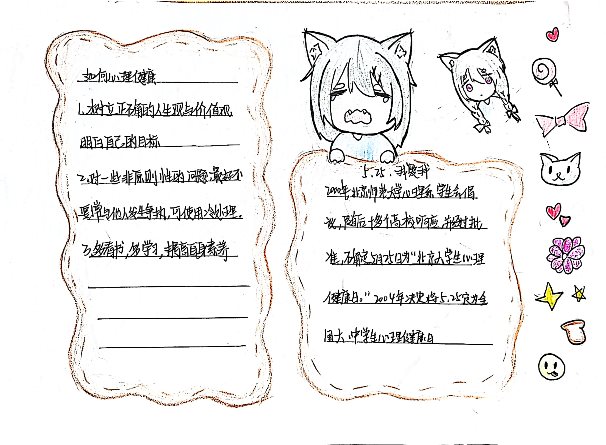 如何心理健康
1、树立正确的人生观与价值观
明白自己的目标
2、对一些非原则性的问题最好不
要常与他人发生争执,可使用冷处理。
3、多看书,多学习,提高自身素养
5.25、我爱我
2000年北京师范大学心理系学生会倡
议,随后十多个高校响应,并经过批
准,确定5月25日为“北京大学生心理
健康日。”2004年决定将5.25定为全
国大、中学生心理健康日